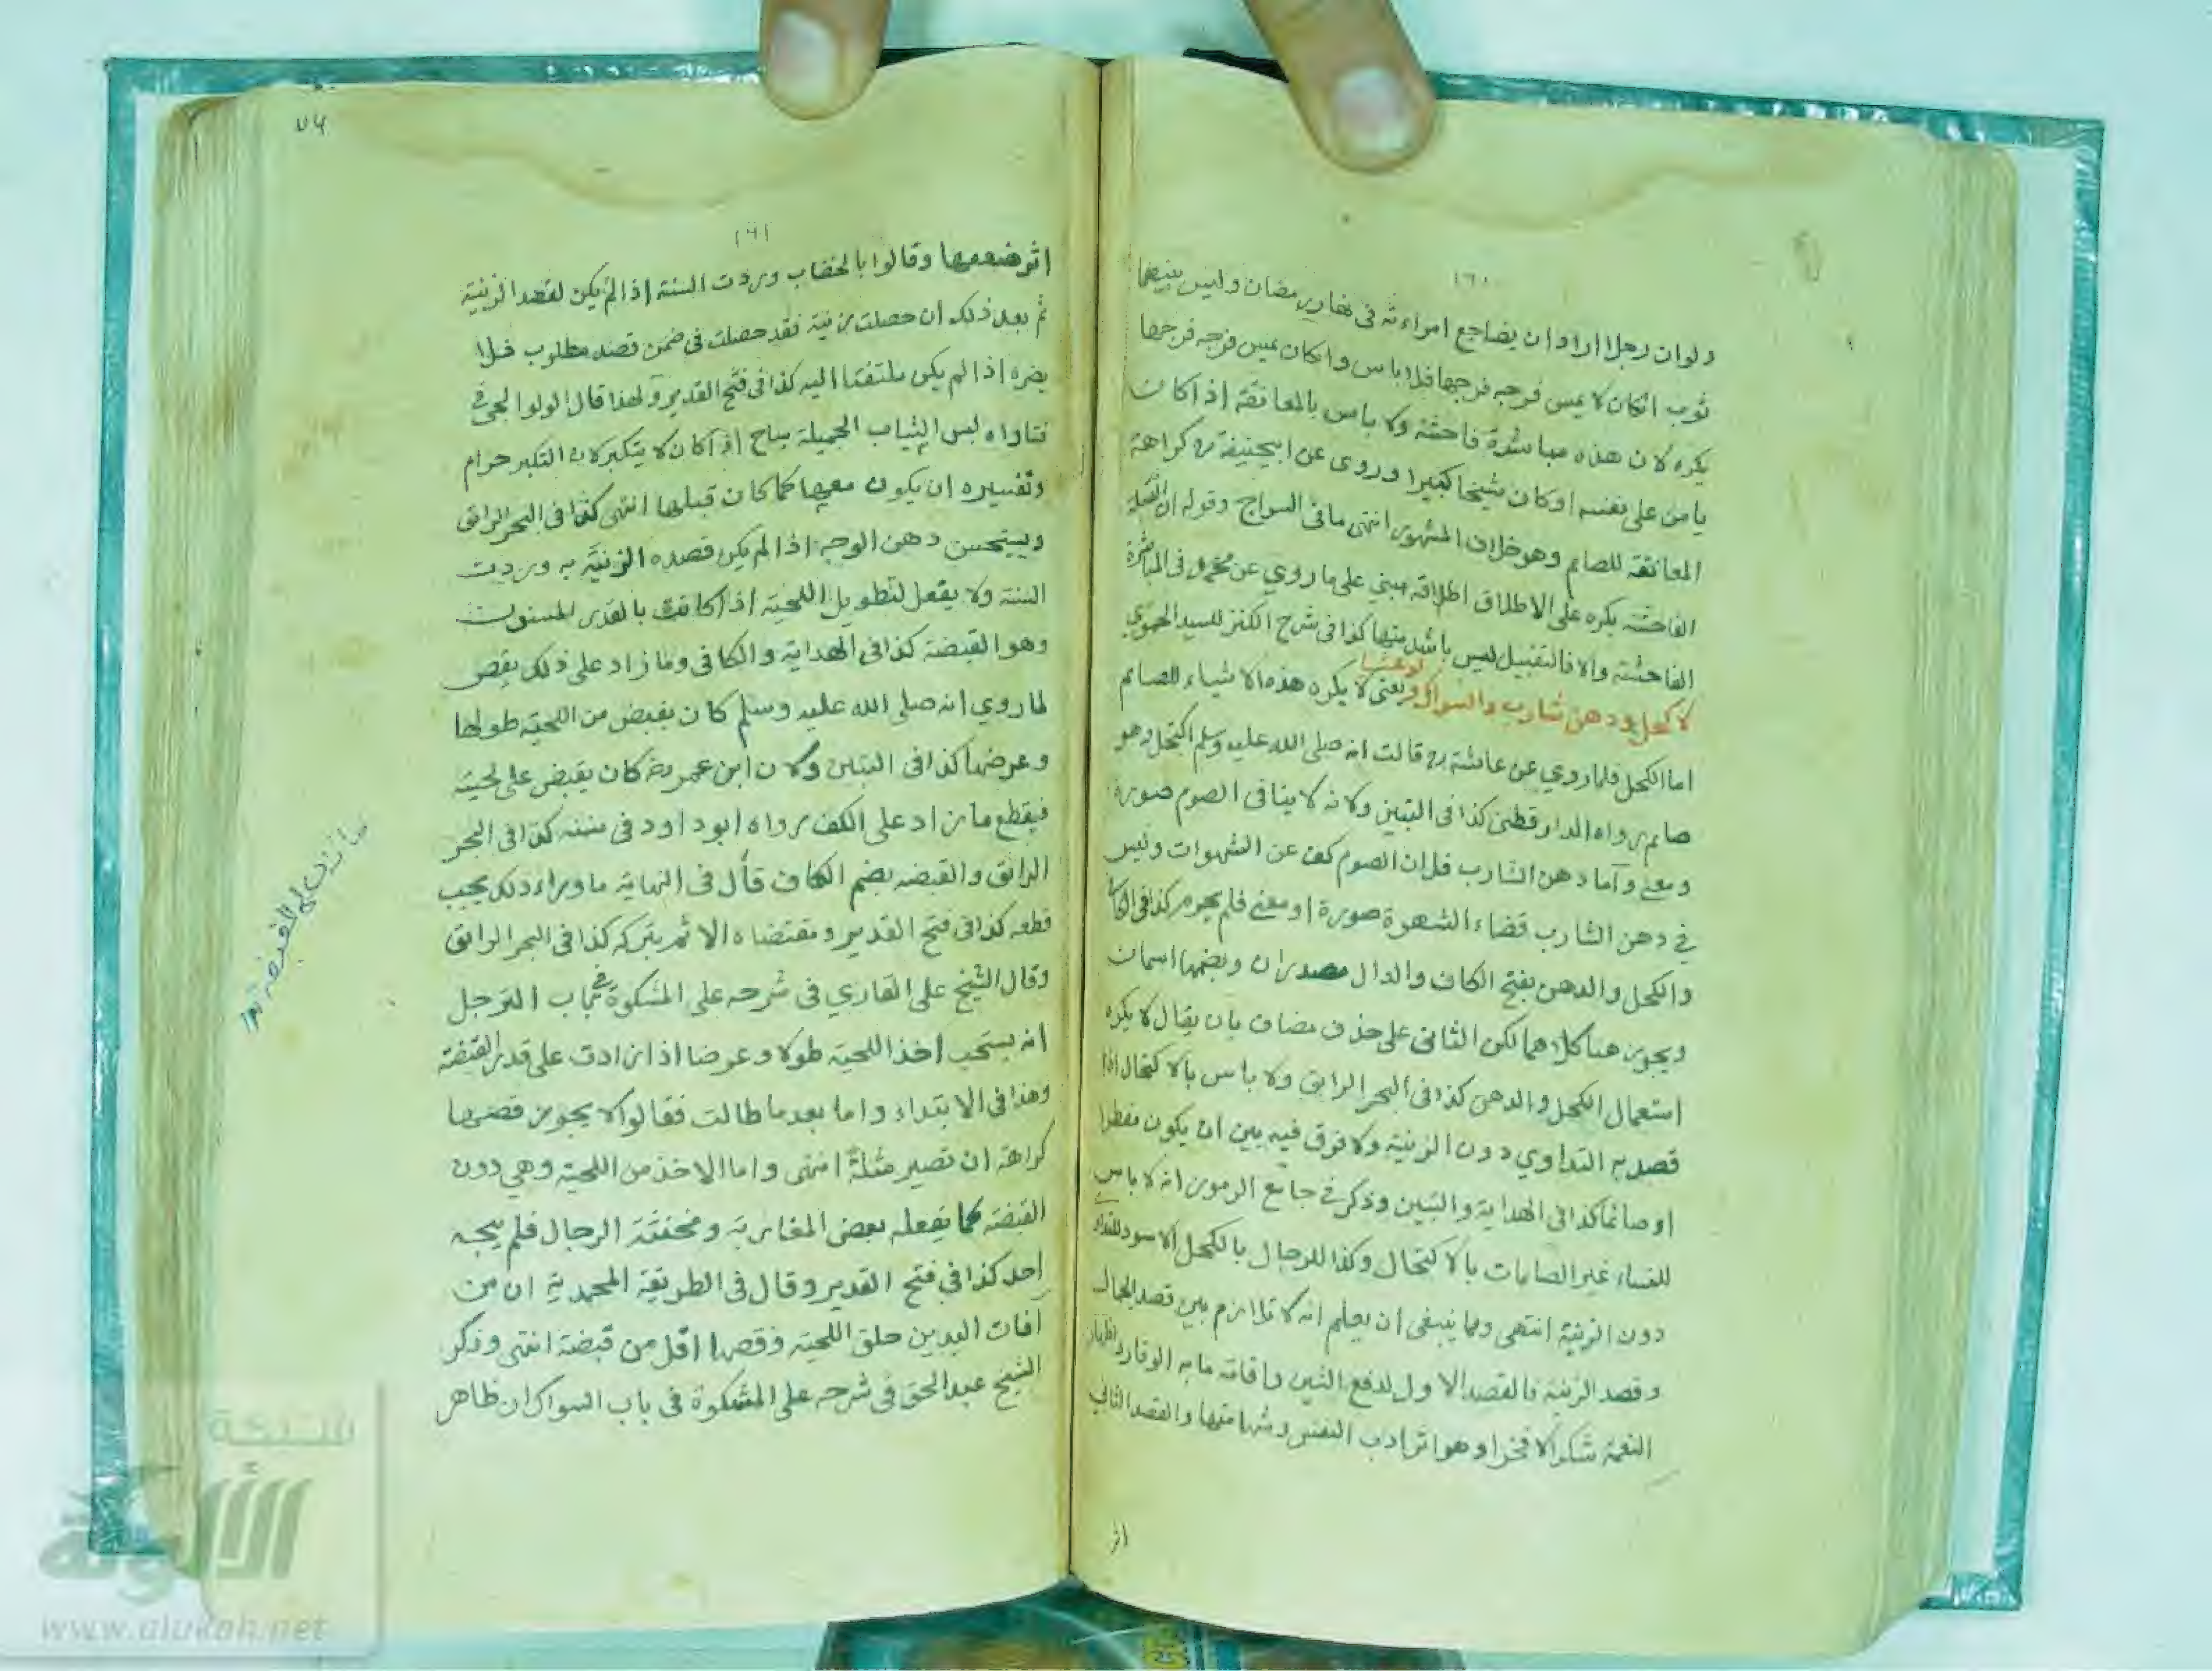 ١٦٠
ولوان رجلا اراد ان يضاجع امراءته فى نهار رمضان وليس بينهما
ثوب انكان لا يمس فرجه فرجها فلا باس وانكان يمس فرجه فرجها
يكره لان هذه مباشرة فاحشة ولا باس بالمعانقة اذا كان
يامن على نفسه اوكان شيخا كبيرا وروى عن ابيحنيفة رح كراهة
المعانقة للصايم وهو خلاف المشهور انتهى مافى السراج وقوله ان القبلة
الفاحشة يكره على الاطلاق اطلاقه مبني على ما روي عن محمد فى المباشرة
الفاحشة والا فالتقبيل ليس باشد منها كذا فى شرح الكنز للسيد الحموي
لا كحل ودهن شارب والسواك ولو عشيا يعنى لا يكره هذه الاشياء للصائم
اما الكحل فلما روي عن عائشة رض قالت انه صلى الله عليه وسلم اكتحل وهو
صايم رواه الدار قطنى كذا فى التبين ولانه لا ينافى الصوم صورة
ومعنى وآما دهن الشارب فلان الصوم كف عن الشهوات وليس
في دهن الشارب قضاء الشهوة صورة او معنى فلم يحرم كذا فى الكافى
والكحل والدهن بفتح الكاف والدال مصدران وبضمها اسمان
ويجوز هنا كلاهما لكن الثانى على حذف مضاف بان يقال لا يكره
استعمال الكحل والدهن كذا فى البحر الرايق ولا باس بالاكتحال اذا
قصد به التداوي دون الزينة ولا فرق فيه بين ان يكون مفطرا
او صائما كذا فى الهداية والتبين وذكر فى جامع الرموز انه لا باس
للنساء غير الصايمات بالاكتحال وكذا للرجال بالكحل الاسود للتداوي
دون الزينة انتهى ومما ينبغى ان يعلم انه لا تلازم بين قصد الجمال
وقصد الزينة فالقصد الاول لدفع الشين واقامة ما به الوقار واظهار
النعمة شكرا لا فخرا وهو اثر ادب النفس وشهامتها والقصد الثانى
اثر
٧٦
١٦١
اثر ضعفها وقالوا بالخضاب وردت السنة اذا لم يكن لقصد الزينة
ثم بعد ذلك ان حصلت زينة فقد حصلت فى ضمن قصد مطلوب فلا
يضره اذا لم يكن ملتفتا اليه كذا فى فتح القدير ولهذا قال الولوالجى فى
فتاواه لبس الثياب الجميلة مباح اذا كان لا يتكبر لان التكبر حرام
وتفسيره ان يكون معها كما كان قبلها انتهى كذا فى البحر الرائق
ويستحسن دهن الوجه اذا لم يكن قصده الزينة به وردت
السنة ولا يفعل لتطويل اللحية اذا كانت بالقدر المسنون
وهو القبضة كذا فى الهداية والكافى وما زاد على ذلك يقص
لما روي انه صلى الله عليه وسلم كان يقبض من اللحية طولها
وعرضها كذا فى التبين ولان ابن عمر رض كان يقبض على لحيته
فيقطع ما زاد على الكف رواه ابو داود فى سننه كذا فى البحر
الرائق والقبضه بضم الكاف قال فى النهاية ما وراء ذلك يجب
قطعه كذا فى فتح القدير ومقتضاه الاثم بتركه كذا فى البحر الرايق
وقال الشيخ على القاري فى شرحه على المشكوة فى باب الترجل
انه يستحب اخذ اللحية طولا وعرضا اذا زادت على قدر القبضة
وهذا فى الابتداء واما بعد ما طالت فقالوا لا يجوز قصها
كراهة ان تصير مثلة انتهى واما الاخذ من اللحية وهي دون
القبضة كما يفعله بعض المغاربة ومخنثة الرجال فلم يبحه
احد كذا فى فتح القدير وقال فى الطريقة المحمدية ان من
آفات اليدين حلق اللحية وقصها اقل من قبضة انتهى وذكر
الشيخ عبد الحق فى شرحه على المشكوة فى باب السواك ان ظاهر
شبكة
الألوكة
www.alukah.net